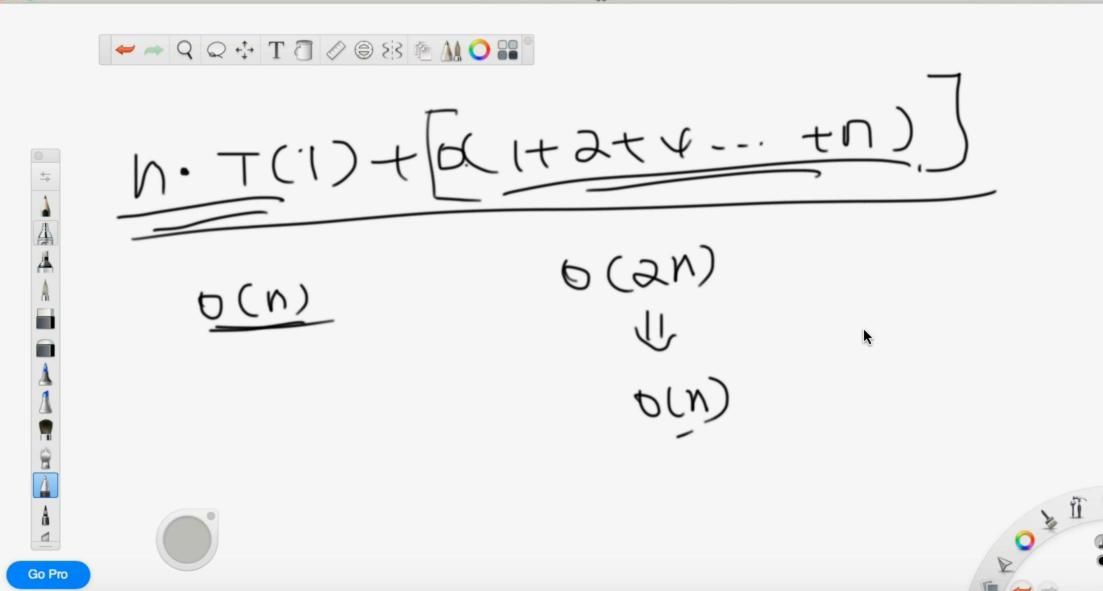 T
n · T(1) + [α(1+2+4... +n)]
O(n)
O(2n)
⇓
O(n)
Go Pro